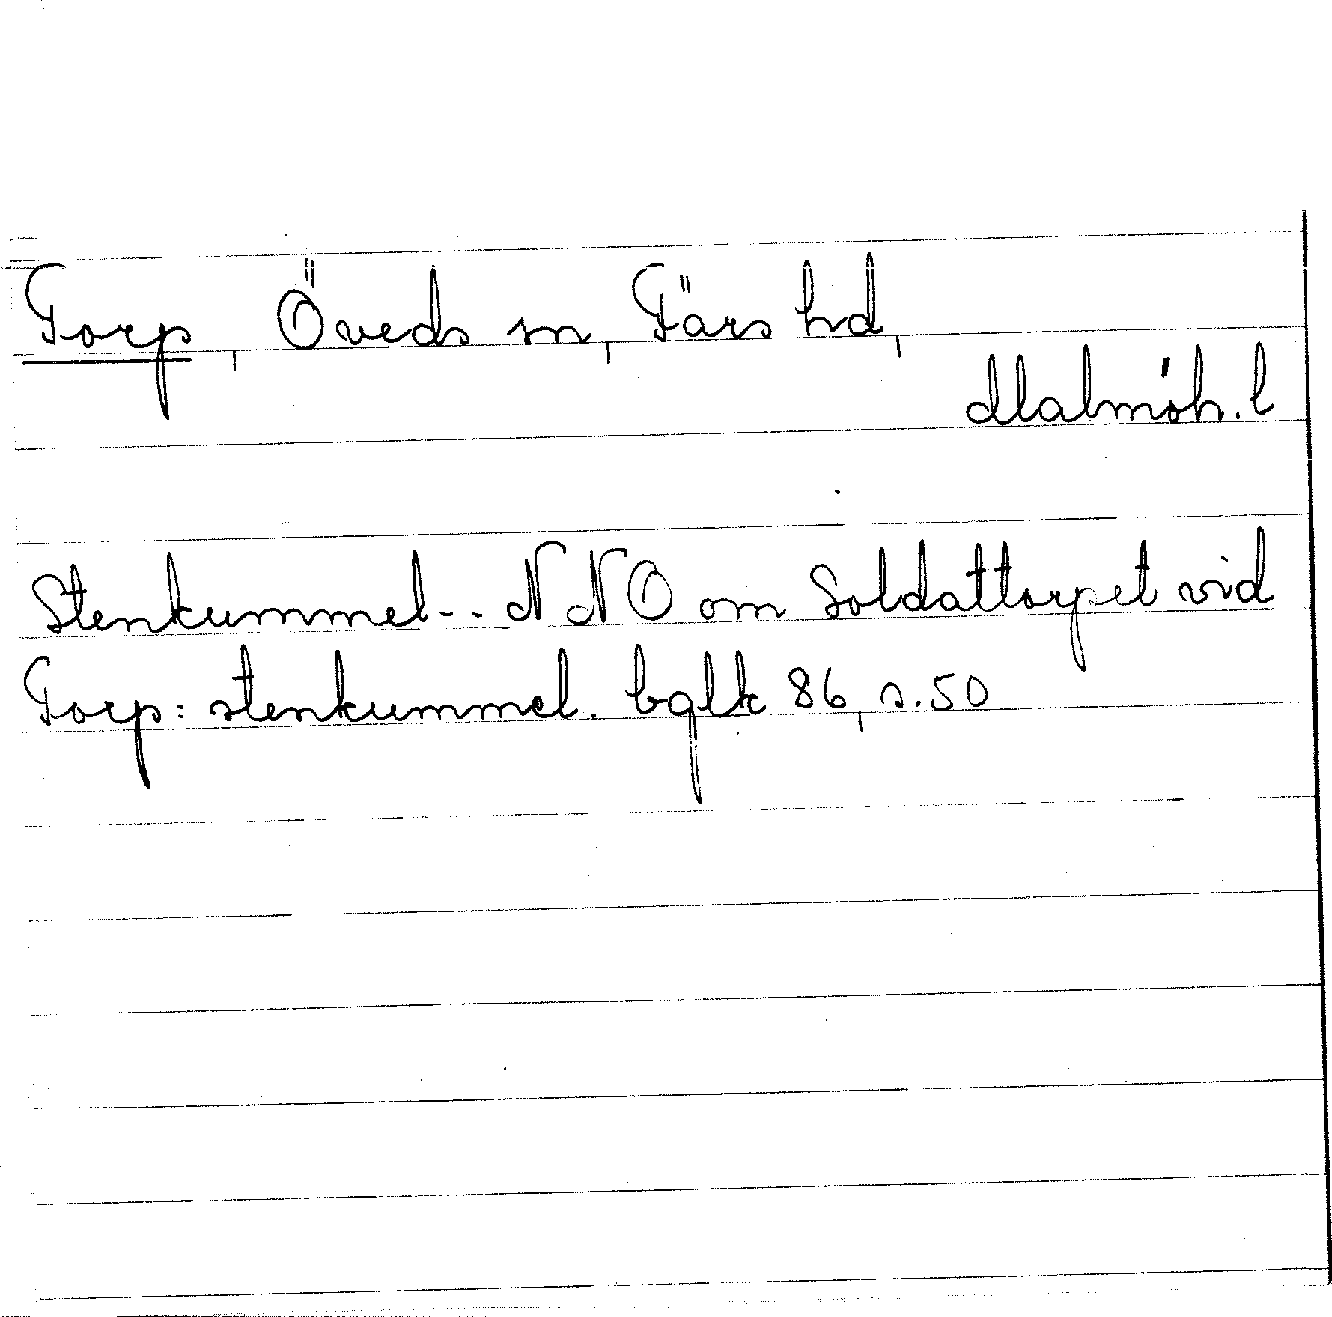 Torp, Öveds sn, Färs hd,
Malmöh. l
Stenkummel-- NNO om Soldattorpet vid
Torp: stenkummel. bglk 86, s. 50